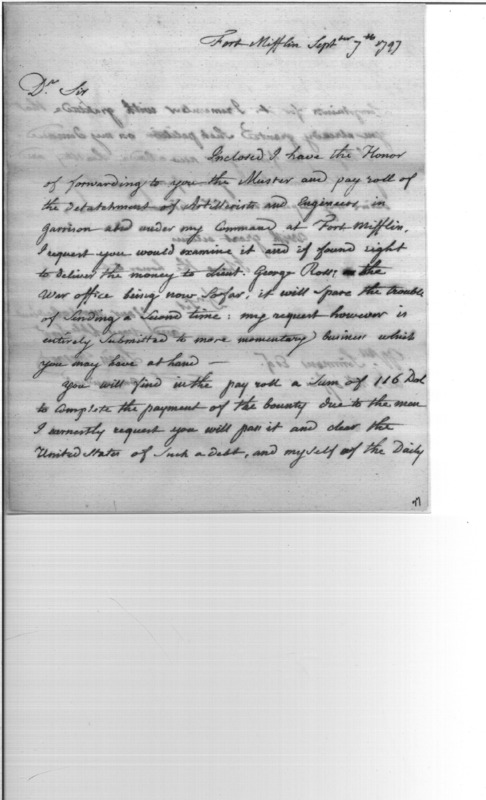 Fort Mifflin Septber 7th 1797
Dr Sir
Inclosed I have the Honor
of forwarding to you the Muster and pay roll of
the detatchment of Artillerists and Engineers in
garrison and under my Command at Fort Mifflin.
I request you would examine it and if found right
to deliver the money to Lieut: George Ross; the
War office being now So far; it will Spare the trouble
of Sending a Second time: my request however is
entirely Submitted to more momentary business which
you may have at hand —
You will find in the pay roll a Sum of 116 Dol
to complete the payment of the bounty due to the men
I earnestly request you will pass it and clear the
United States of Such a debt, and myself of the Daily